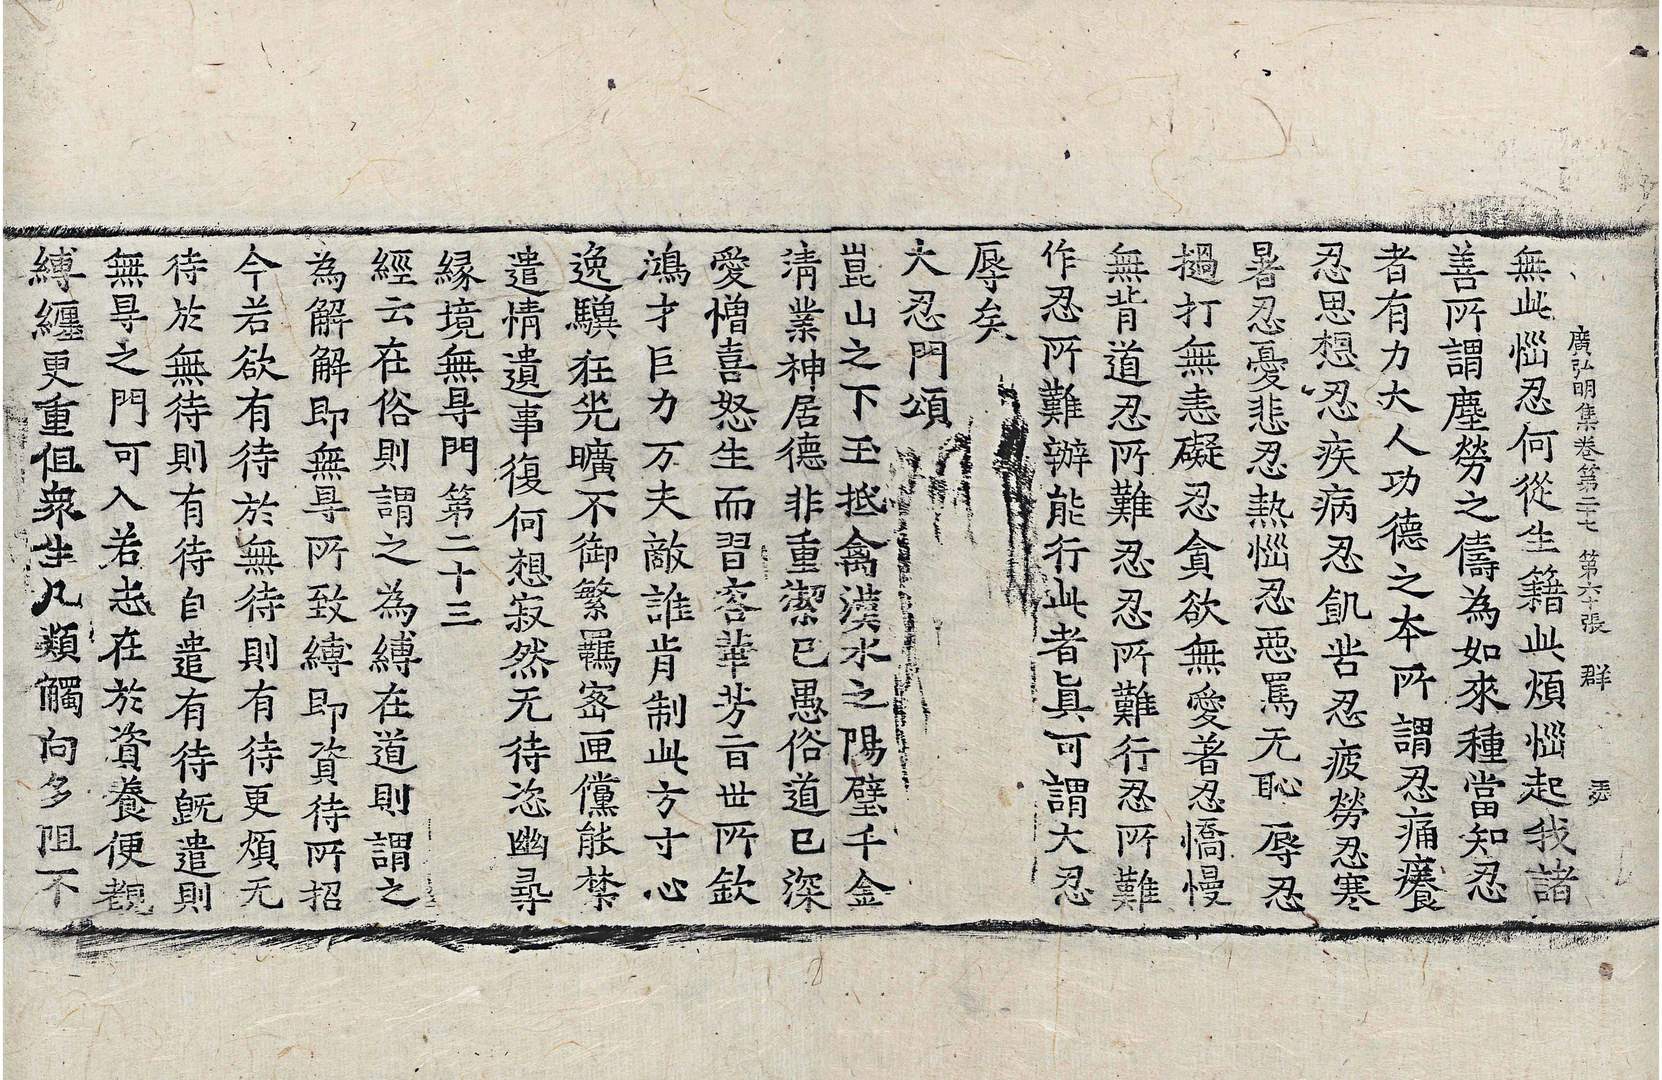 廣弘明集卷第二十七 第六十張 群
無此惱忍何從生籍此煩惱起我諸
善所謂塵勞之儔為如來種當知忍
者有力大人功德之本所謂忍痛癢
忍思想忍疾病忍飢苦忍疲勞忍寒
暑忍憂悲忍熱惱忍惡罵无恥辱忍
撾打無恚礙忍貪欲無愛著忍憍慢
無背道忍所難忍忍所難行忍所難
作忍所難辦能行此者真可謂大忍
辱矣
大忍門頌
崑山之下玉抵禽漢水之陽璧千金
清業神居德非重潔已愚俗道已深
愛憎喜怒生而習容華芳旨世所欽
鴻才巨力万夫敵誰肯制此方寸心
逸驥狂兕曠不御繁羈密匣儻能禁
遣情遺事復何想寂然无待恣幽尋
緣境無㝵門第二十三
經云在俗則謂之為縛在道則謂之
為解解即無㝵所致縛即資待所招
今若欲有待於無待則有待更煩无
待於無待則有待自遣有待旣遣則
無㝵之門可入若志在於資養便觀
縛纏更重但衆生凡類觸向多阻不